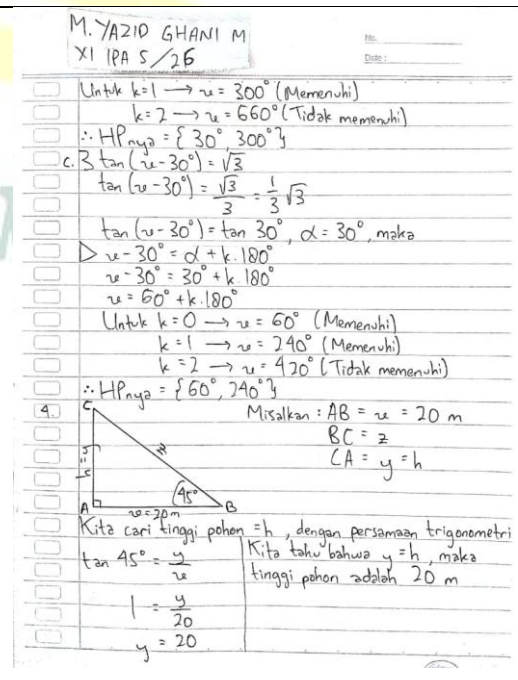 M. YAZID GHANI M
XI IPA 5/26
No.
Date :
Untuk k=1 → x = 300° (Memenuhi)
k=2 → x = 660° (Tidak memenuhi)
∴ HPnya = {30°, 300°}
c. 3 tan (x-30°) = √3
tan (x-30°) = √3/3 = 1/3 √3
tan (x-30°) = tan 30°, α = 30°, maka
▷ x-30° = α + k.180°
x-30° = 30° + k.180°
x = 60° + k.180°
Untuk k=0 → x = 60° (Memenuhi)
k=1 → x = 240° (Memenuhi)
k=2 → x = 420° (Tidak memenuhi)
∴ HPnya = {60°, 240°}
4.
C
Misalkan : AB = x = 20 m
BC = z
CA = y = h
y=h
z
45°
A
B
x=20m
Kita cari tinggi pohon =h, dengan persamaan trigonometri
tan 45° = y/x
1 = y/20
y = 20
Kita tahu bahwa y = h, maka
tinggi pohon adalah 20 m